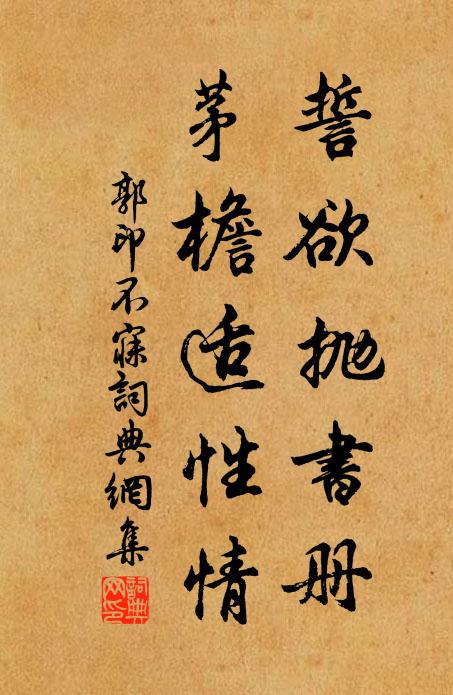 誓欲抛書册
茅檐适性情
郭印不寐詞典網集
詞典网印